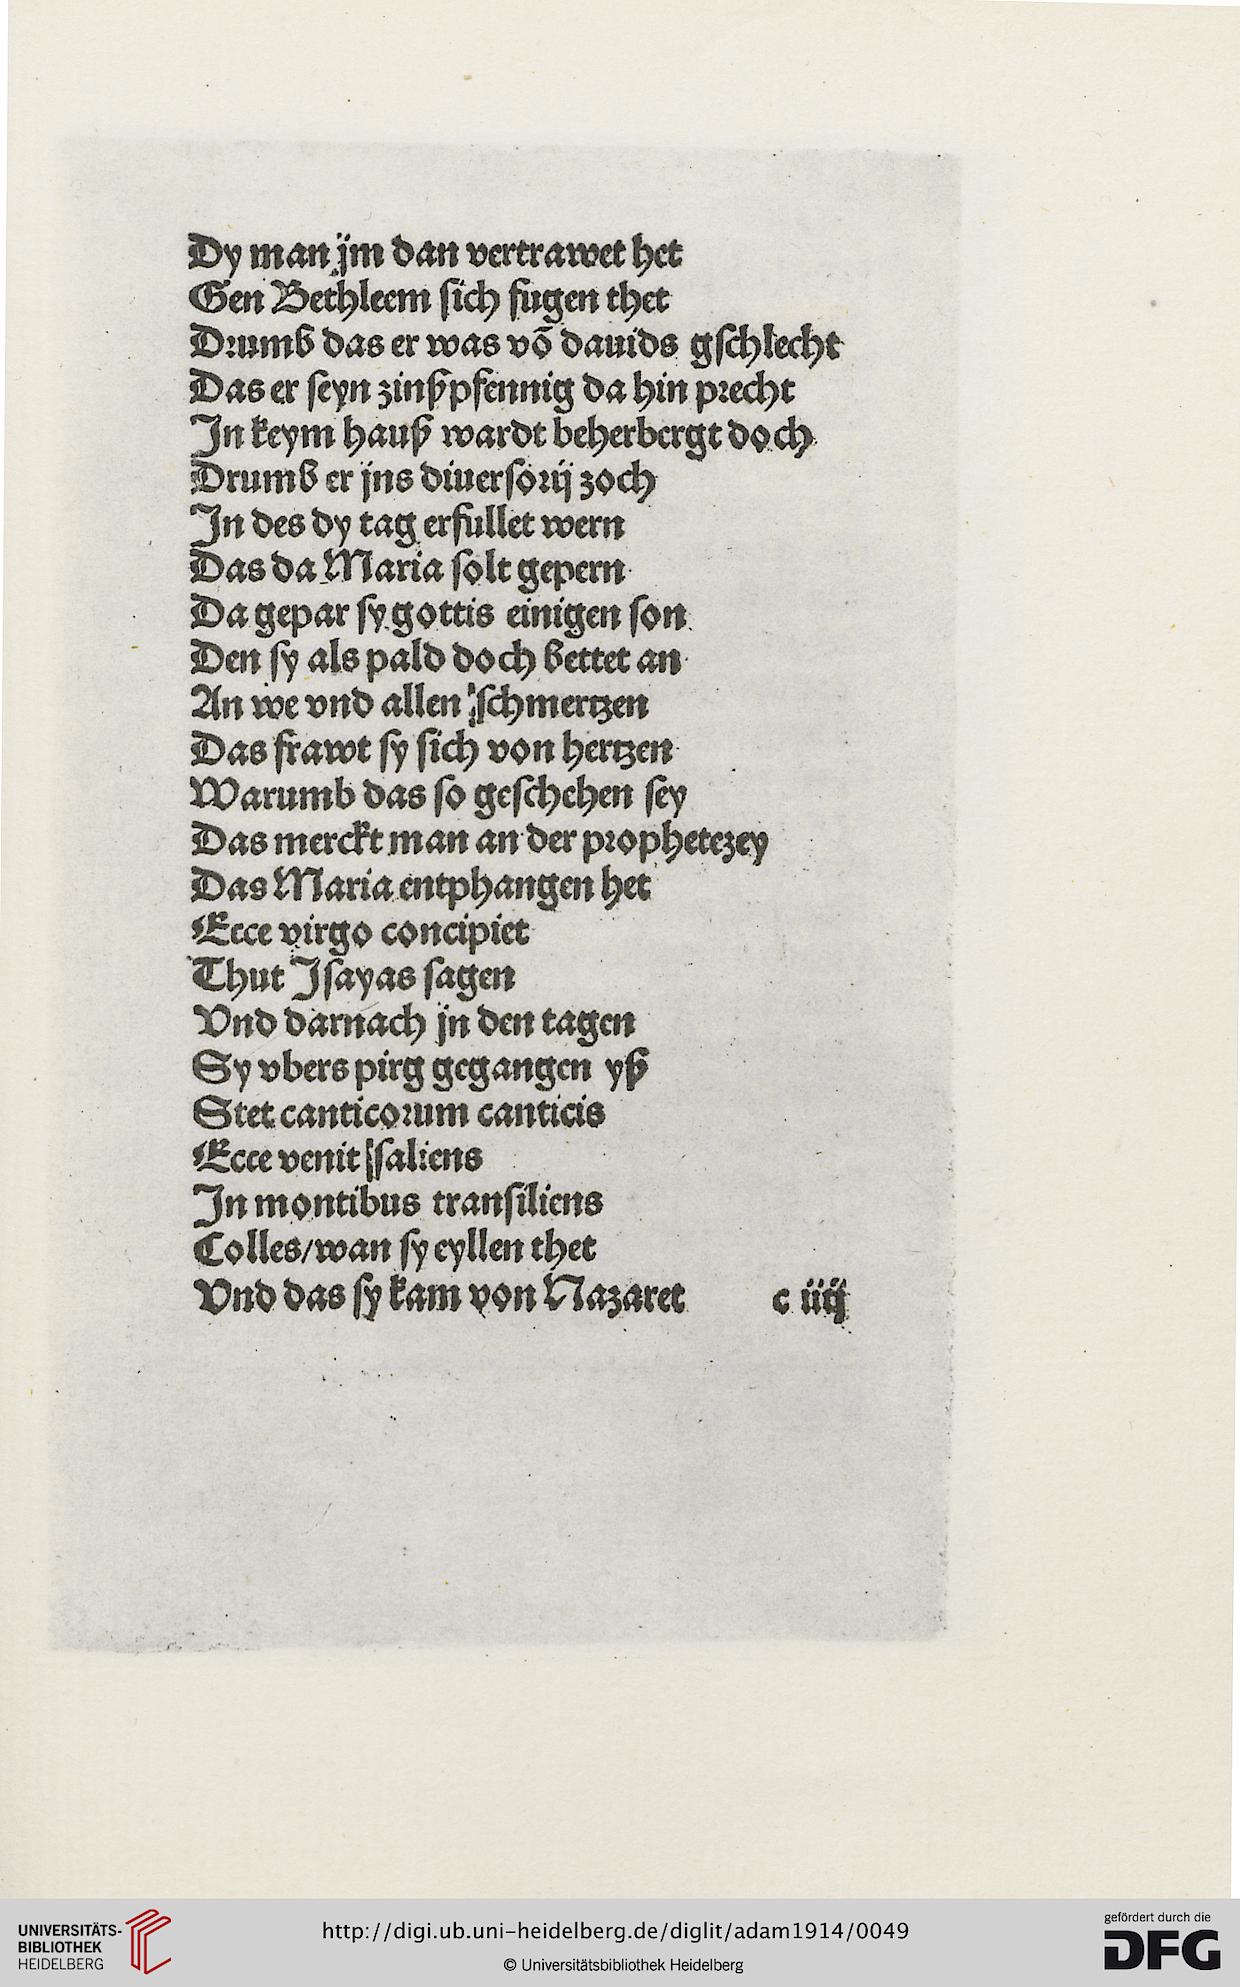 Dy man jm dan vertrawet het
Gen Bethleem sich fugen thet
Drumb das er was võ dauids gschlecht
Das er seyn zinßpfennig da hin precht
In keym hauß wardt beherbergt doch
Drumb er jns diuersorij zoch
In des dy tag erfullet wern
Das da Maria solt gepern
Da gepar sy gottis einigen son
Den sy als pald doch bettet an
An we vnd allen schmertzen
Das frawt sy sich von hertzen
Warumb das so geschehen sey
Das merckt man an der prophetezey
Das Maria entphangen het
Ecce virgo concipiet
Thut Isayas sagen
Vnd darnach jn den tagen
Sy vbers pirg gegangen yß
Stet canticorum canticis
Ecce venit saliens
In montibus transiliens
Colles/wan sy eyllen thet
Vnd das sy kam von Nazaret c iiij
UNIVERSITÄTS-
BIBLIOTHEK
HEIDELBERG
http://digi.ub.uni-heidelberg.de/diglit/adam1914/0049
© Universitätsbibliothek Heidelberg
gefördert durch die
DFG